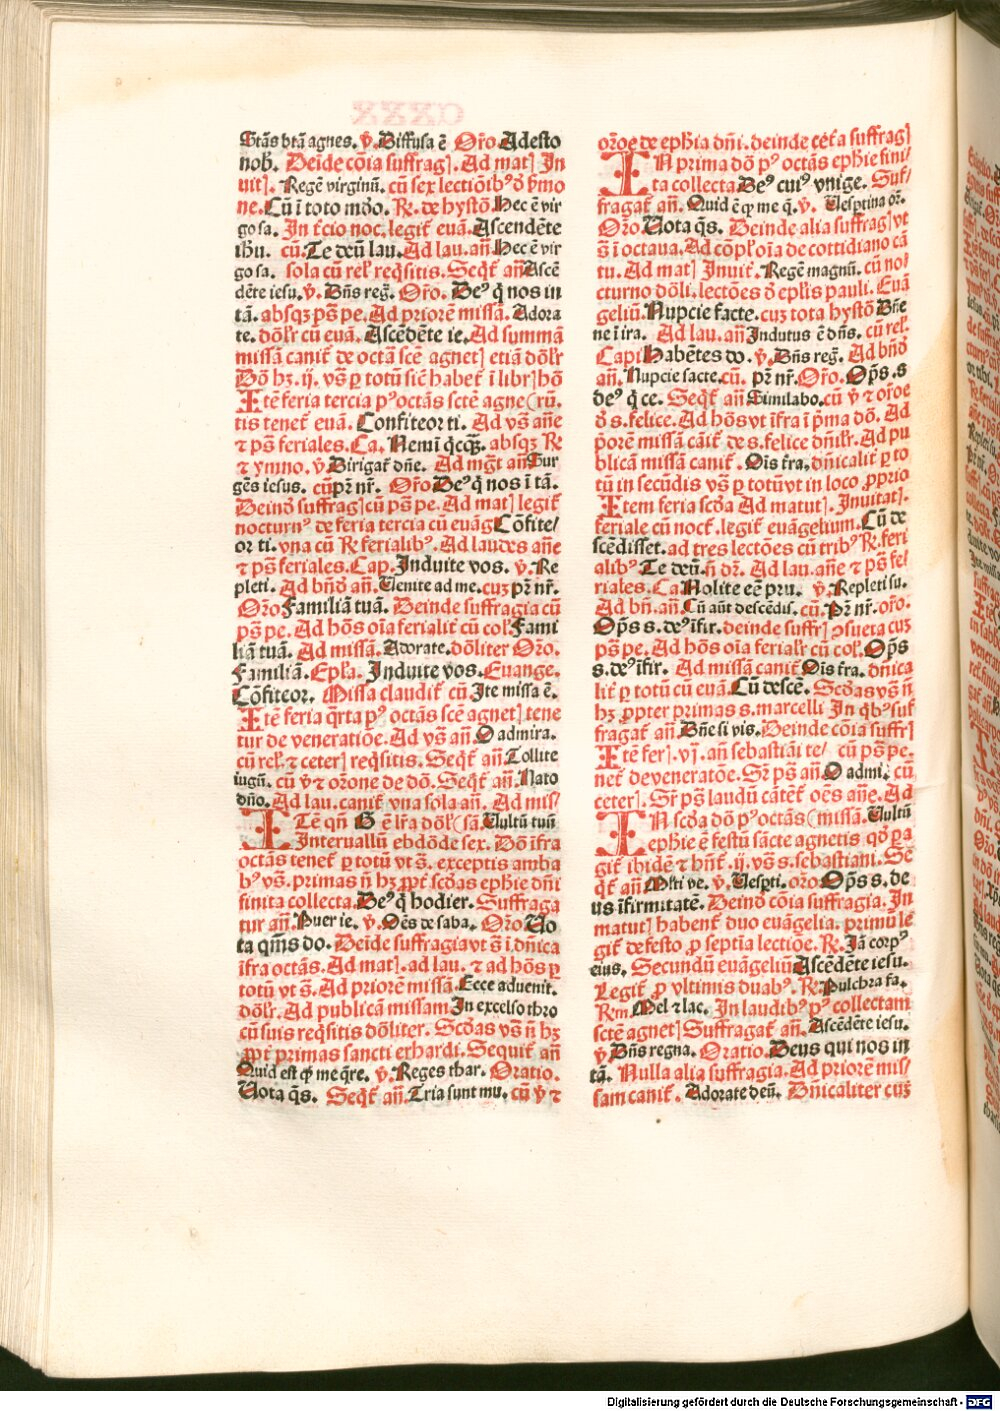 Stās btā agnes. ꝟ. Diffusa ē Oro Adesto
nob̄. Deīde cōia suffragꝫ. Ad matꝫ In
uitꝫ. Regē virginū. cū sex lectiōibꝰ ꝺ p̄mo
ne. Cū i toto mꝺo. ℟. de hystō. Hec ē vir
go sa. In t̄cio noc. legit᷑ euā. Ascendēte
ihū. cū. Te deū lau. Ad lau. añ Hec ē vir
go sa. sola cū relꝭ reqͥsitis. Seqt᷑ añ Ascē
dēte iesu. ꝟ. Dn̄s reg̃. Oro. Deꝰ q̄ nos in
tā. absqꝫ ps̄ pe. Ad priorē missā. Adora
te. dōlr̄ cū euā. Ascēdēte ie. Ad summā
missā canit᷑ de octā scē agnetꝫ etiā dōlr̄
Dō hꝫ. ij. vs̄ ꝑ totū sic̄ habet᷑ ī librꝫ hō
Itē feria tercia pꝰ octās sctē agne (rū.
tis tenet᷑ euā. Confiteor ti. Ad vs̄ añe
⁊ ps̄ feriales. Ca. Nemī qͥcqꝫ. absqꝫ ℟
⁊ ymno. ꝟ Dirigat᷑ dn̄e. Ad mg̃t añ Sur
gēs iesus. cū pr̄ nr̄. Oro Deꝰ q̄ nos ī tā.
Deinꝺ suffragꝫ cū ps̄ pe. Ad matꝫ legit᷑
nocturnꝰ de feria tercia cū euāg Cōfite/
or ti. vna cū ℟ ferialibꝰ. Ad laudes añe
⁊ ps̄ feriales. Cap. Induite vos. ꝟ. Re
pleti. Ad bn̄ꝺ añ. Uenite ad me. cuꝫ pr̄ nr̄.
Oro Familiā tuā. Deinde suffragia cū
ps̄ pe. Ad hōs oīa ferialit᷑ cū colꝭ Fami
liā tuā. Ad missā. Adorate. dōliter Oro.
Familiā. Epl̄a. Induite vos. Euange.
Cōfiteor. Missa claudit᷑ cū Ite missa ē.
Itē feria q̄rta pꝰ octās scē agnetꝫ tene
tur de veneratiōe. Ad vs̄ añ O admira.
cū relꝭ ⁊ ceterꝫ reqͥsitis. Seqt᷑ añ. Tollite
iugū. cū ꝟ ⁊ orōne de dō. Seqt᷑ añ. Nato
dn̄o. Ad lau. canit᷑ vna sola añ. Ad mis/
ITē qn̄ G ē lr̄a dōlꝭ (sā. Uultū tuū
Interuallū ebdōde sex. Dō īfra
octās tenet᷑ ꝑ totū vt s̄. exceptis amba
bꝰ vs̄. primas n̄ hꝫ ꝓpt᷑ scd̄as ephīe dn̄i
finita collecta. Deꝰ q̄ hodier. Suffraga
tur añ. Puer ie. ꝟ. Oēs de saba. Oro Uo
ta qm̄s do. Deīde suffragia vt s̄ ī dn̄ica
īfra octās. Ad matꝫ. ad lau. ⁊ ad hōs ꝑ
totū vt s̄. Ad priorē missā. Ecce aduenit.
dōlr̄. Ad publicā missam In excelso thro
cū suis reqͥsitis dōliter. Scd̄as vs̄ n̄ hꝫ
ꝓpt᷑ primas sancti erhardi. Sequit᷑ añ
Quid est qͥ me qͥre. ꝟ. Reges thar. Oratio.
Uota qs̄. Seqt᷑ añ. Tria sunt mu. cū ꝟ ⁊
orōe de ephīa dn̄i. deinde cet᷑a suffragꝫ
IN prima dō pꝰ octās ephīe fini/
ta collecta Deꝰ cuiꝰ vnige. Suf/
fragat᷑ añ. Quid ē qͥ me q̄. ꝟ. Uesp̄tina or̄.
Oro Uota qs̄. Deinde alia suffragꝫ vt
s̄ ī octaua. Ad cōpl̄oīa de cottidiano cā
tu. Ad matꝫ Inuit᷑. Regē magnū. cū no/
cturno dōli. lectōes ꝺ epl̄is pauli. Euā
geliū. Nupcie facte. cuꝫ tota hystō Dn̄e
ne ī ira. Ad lau. añ Indutus ē dn̄s. cū relꝭ.
Capi Habētes do. ꝟ. Dn̄s reg̃. Ad bn̄ꝺ
añ. Nupcie facte. cū. pr̄ nr̄. Oro. Op̄s. s
deꝰ q̄ ce. Seqt᷑ añ Similabo. cū ꝟ ⁊ orōe
ꝺ s. felice. Ad hōs vt īfra ī p̄ma dō. Ad
p̄orē missā cāit᷑ de s. felice dn̄ilr̄. Ad pu
blicā missā canit᷑. Oīs t̄ra. dn̄icalit᷑ ꝑ to
tū in secūdis vs̄ ꝑ totū vt in loco ꝓprio
Item feria scd̄a Ad matut]. Inuitatꝫ.
feriale cū noct᷑. legit᷑ euāgelium. Cū de
scēdisset. ad tres lectōes cū tribꝰ ℟. feri
alibꝰ Te deū. n̄ dr̄. Ad lau. añe ⁊ ps̄ fe/
riales. Ca Nolite eē pru. ꝟ. Repleti su.
Ad bn̄. añ. Cū aūt descēdis. cū. Pr̄ nr̄. oro.
Op̄s s. deꝰ īfir. deinde suffrꝫ ꝯsueta cuꝫ
ps̄ pe. Ad hōs oīa ferialr̄ cū colꝭ. Op̄s
s. deꝰ īfir. Ad missā canit᷑ Oīs t̄ra. dn̄ica
lit᷑ ꝑ totū cū euā Cū desce. Scd̄as vs̄ n̄
hꝫ ꝓpter primas s. marcelli In qͥbꝰ suf
fragat᷑ añ. Dn̄e si vis. Deinde cōia suffrꝫ
Itē ferꝫ. vj. añ sebastiāi te/ cū ps̄ pe.
net᷑ de veneratōe. Sr̄ ps̄ añ. O admi. cū
ceterꝫ. Sr̄ ps̄ laudū cātēt᷑ oēs añe. Ad
IN scd̄a dō pꝰ octās (missā. Uultū
ephīe ē festū sācte agnetis qͦꝺ ꝑa
git᷑ ibidē ⁊ hn̄t᷑. ij. vs̄ s. sebastiani. Se
qt᷑ añ Mr̄ti ve. ꝟ. Uesp̄ti. oro Op̄s s. de
us īfirmitatē. Deinꝺ cōia suffragia. In
matutꝫ habent᷑ duo euāgelia. primū le
git᷑ de festo ꝓ septīa lectiōe. ℟. Iā corpꝰ
eius. Secundū euāgeliū Ascēdēte iesu.
Legit᷑ ꝓ vltimis duabꝰ. ℟. Pulchra fa.
℟m Mel ⁊ lac. In laudibꝰ pꝰ collectam
sctē agnetꝫ Suffragat᷑ añ. Ascēdēte iesu.
ꝟ Dn̄s regna. Oratio. Deus qui nos in
tā. Nulla alia suffragia. Ad priorē mis/
sam canit᷑. Adorate deū. Dn̄icaliter cuꝫ
Digitalisierung gefördert durch die Deutsche Forschungsgemeinschaft - DFG